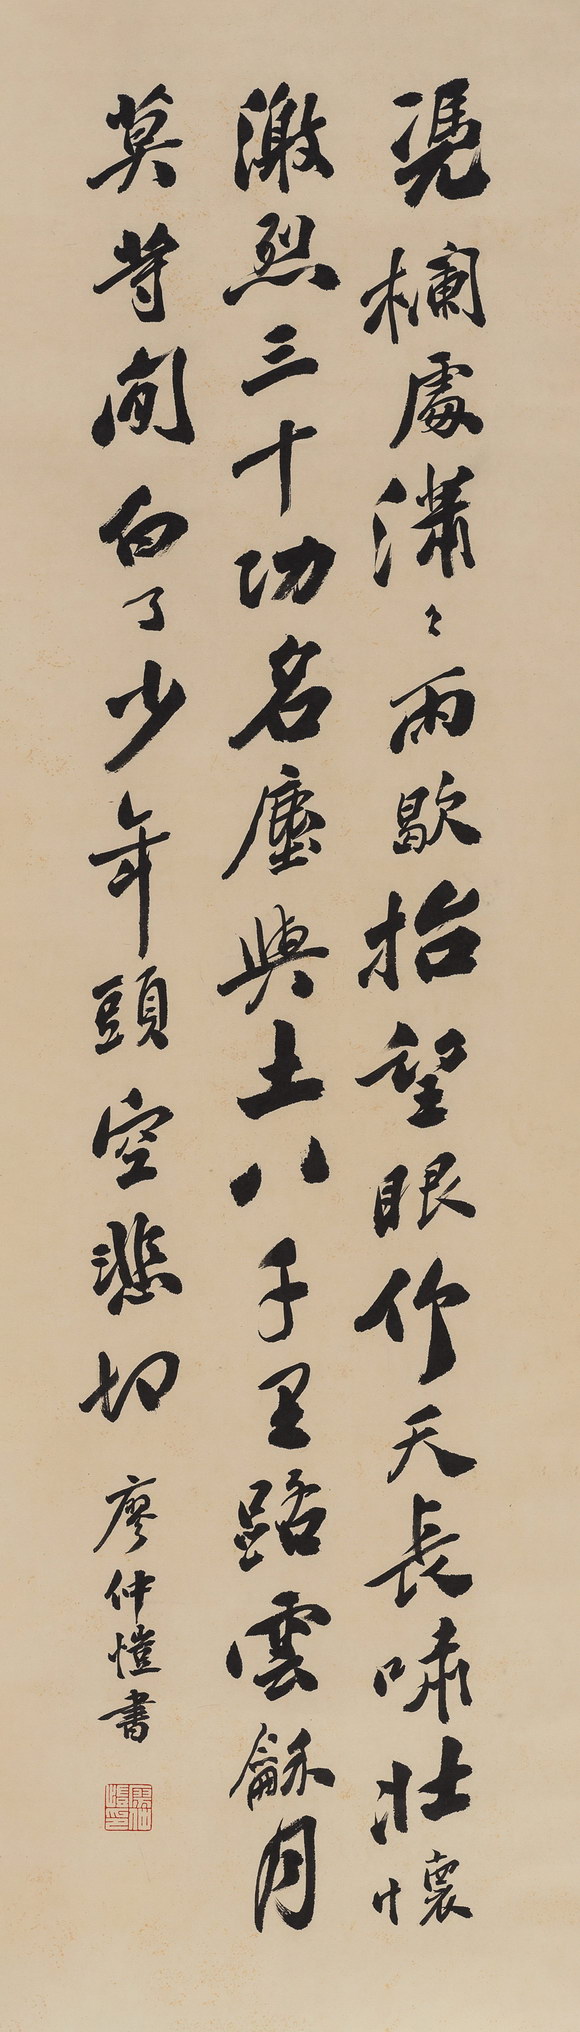 凴欄處瀟〻雨歇抬望眼仰天長嘯壯懷
激烈三十功名塵與土八千里路雲龢月
莫等閒白了少年頭空悲切
廖仲愷書